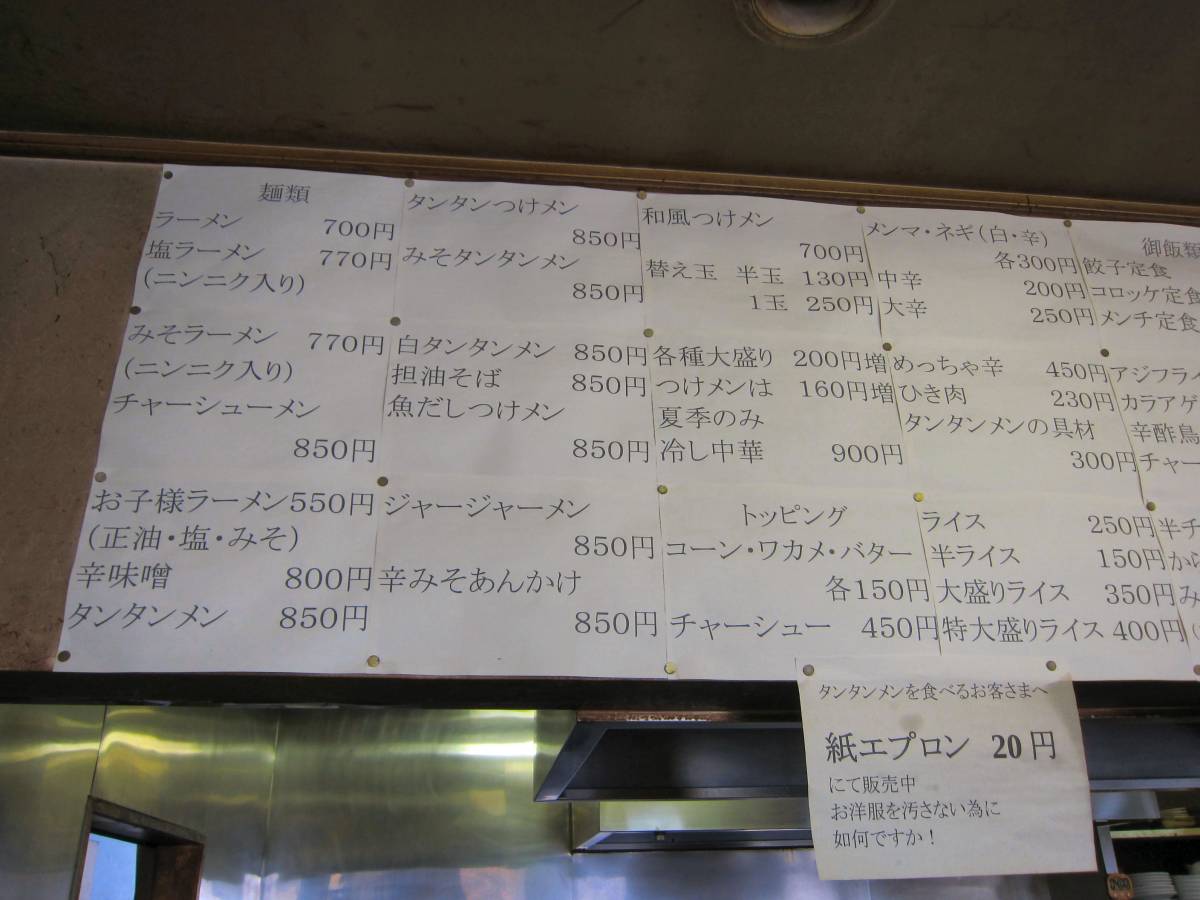 麺類
ラーメン 700円
塩ラーメン 770円
(ニンニク入り)
みそラーメン 770円
(ニンニク入り)
チャーシューメン
850円
お子様ラーメン550円
(正油・塩・みそ)
辛味噌 800円
タンタンメン 850円
タンタンつけメン
850円
みそタンタンメン
850円
白タンタンメン 850円
担油そば 850円
魚だしつけメン
850円
ジャージャーメン
850円
辛みそあんかけ
850円
和風つけメン
700円
替え玉 半玉 130円
1玉 250円
各種大盛り 200円増
つけメンは 160円増
夏季のみ
冷し中華 900円
トッピング
コーン・ワカメ・バター
各150円
チャーシュー 450円
メンマ・ネギ(白・辛)
各300円
中辛 200円
大辛 250円
めっちゃ辛 450円
ひき肉 230円
タンタンメンの具材
300円
ライス 250円
半ライス 150円
大盛りライス 350円
特大盛りライス 400円
御飯類
餃子定食
コロッケ定食
メンチ定食
アジフライ
カラアゲ
辛酢鳥
チャー
半チ
から
み
タンタンメンを食べるお客さまへ
紙エプロン 20円
にて販売中
お洋服を汚さない為に
如何ですか!